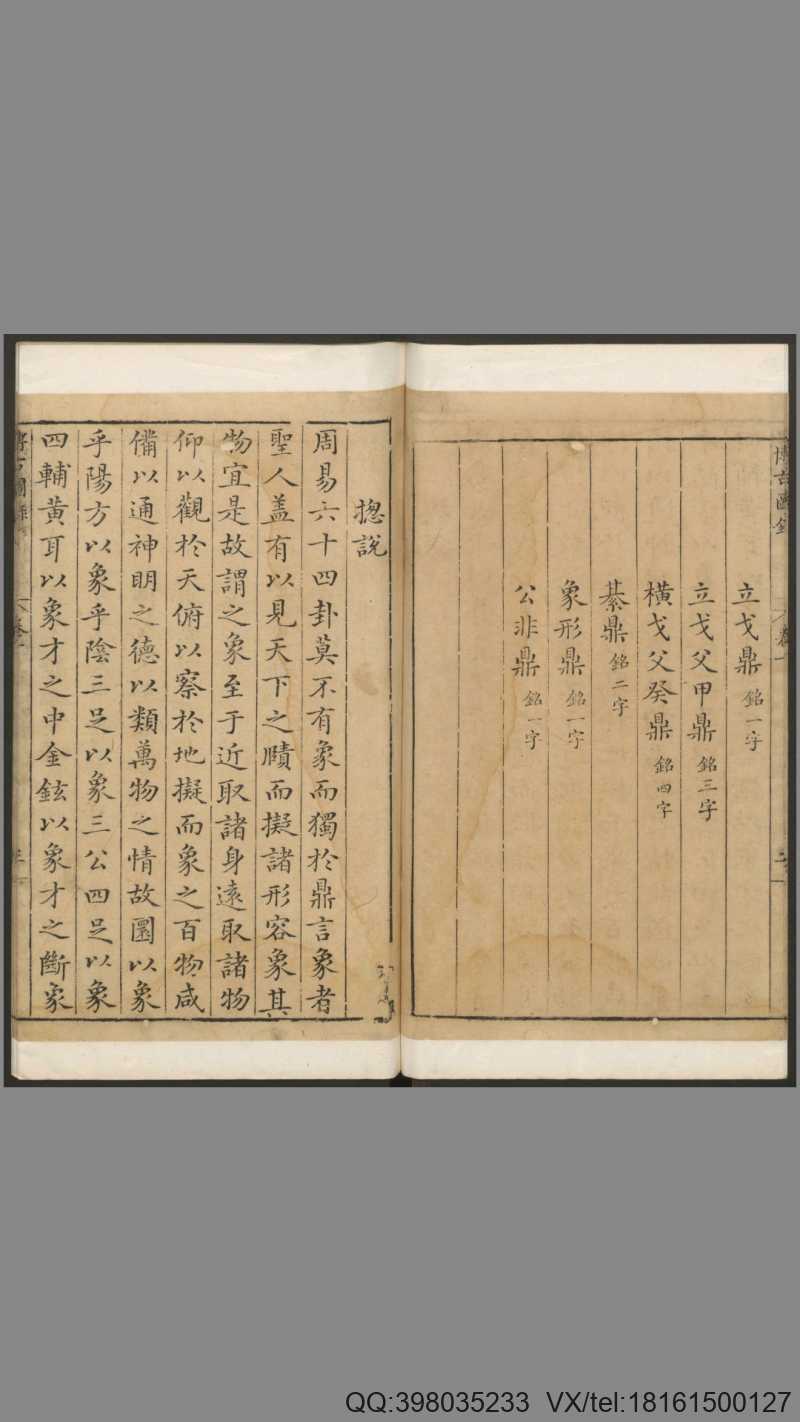 博古圖錄
立戈鼎 銘一字
立戈父甲鼎 銘三字
橫戈父癸鼎 銘四字
綦鼎 銘二字
象形鼎 銘一字
公非鼎 銘一字
揔說
周易六十四卦莫不有象而獨於鼎言象者
聖人盖有以見天下之賾而擬諸形容象其
物宜是故謂之象至于近取諸身遠取諸物
仰以觀於天俯以察於地擬而象之百物咸
備以通神明之德以類萬物之情故圜以象
乎陽方以象乎陰三足以象三公四足以象
四輔黃耳以象才之中金鉉以象才之斷象
QQ:398035233 VX/tel:18161500127